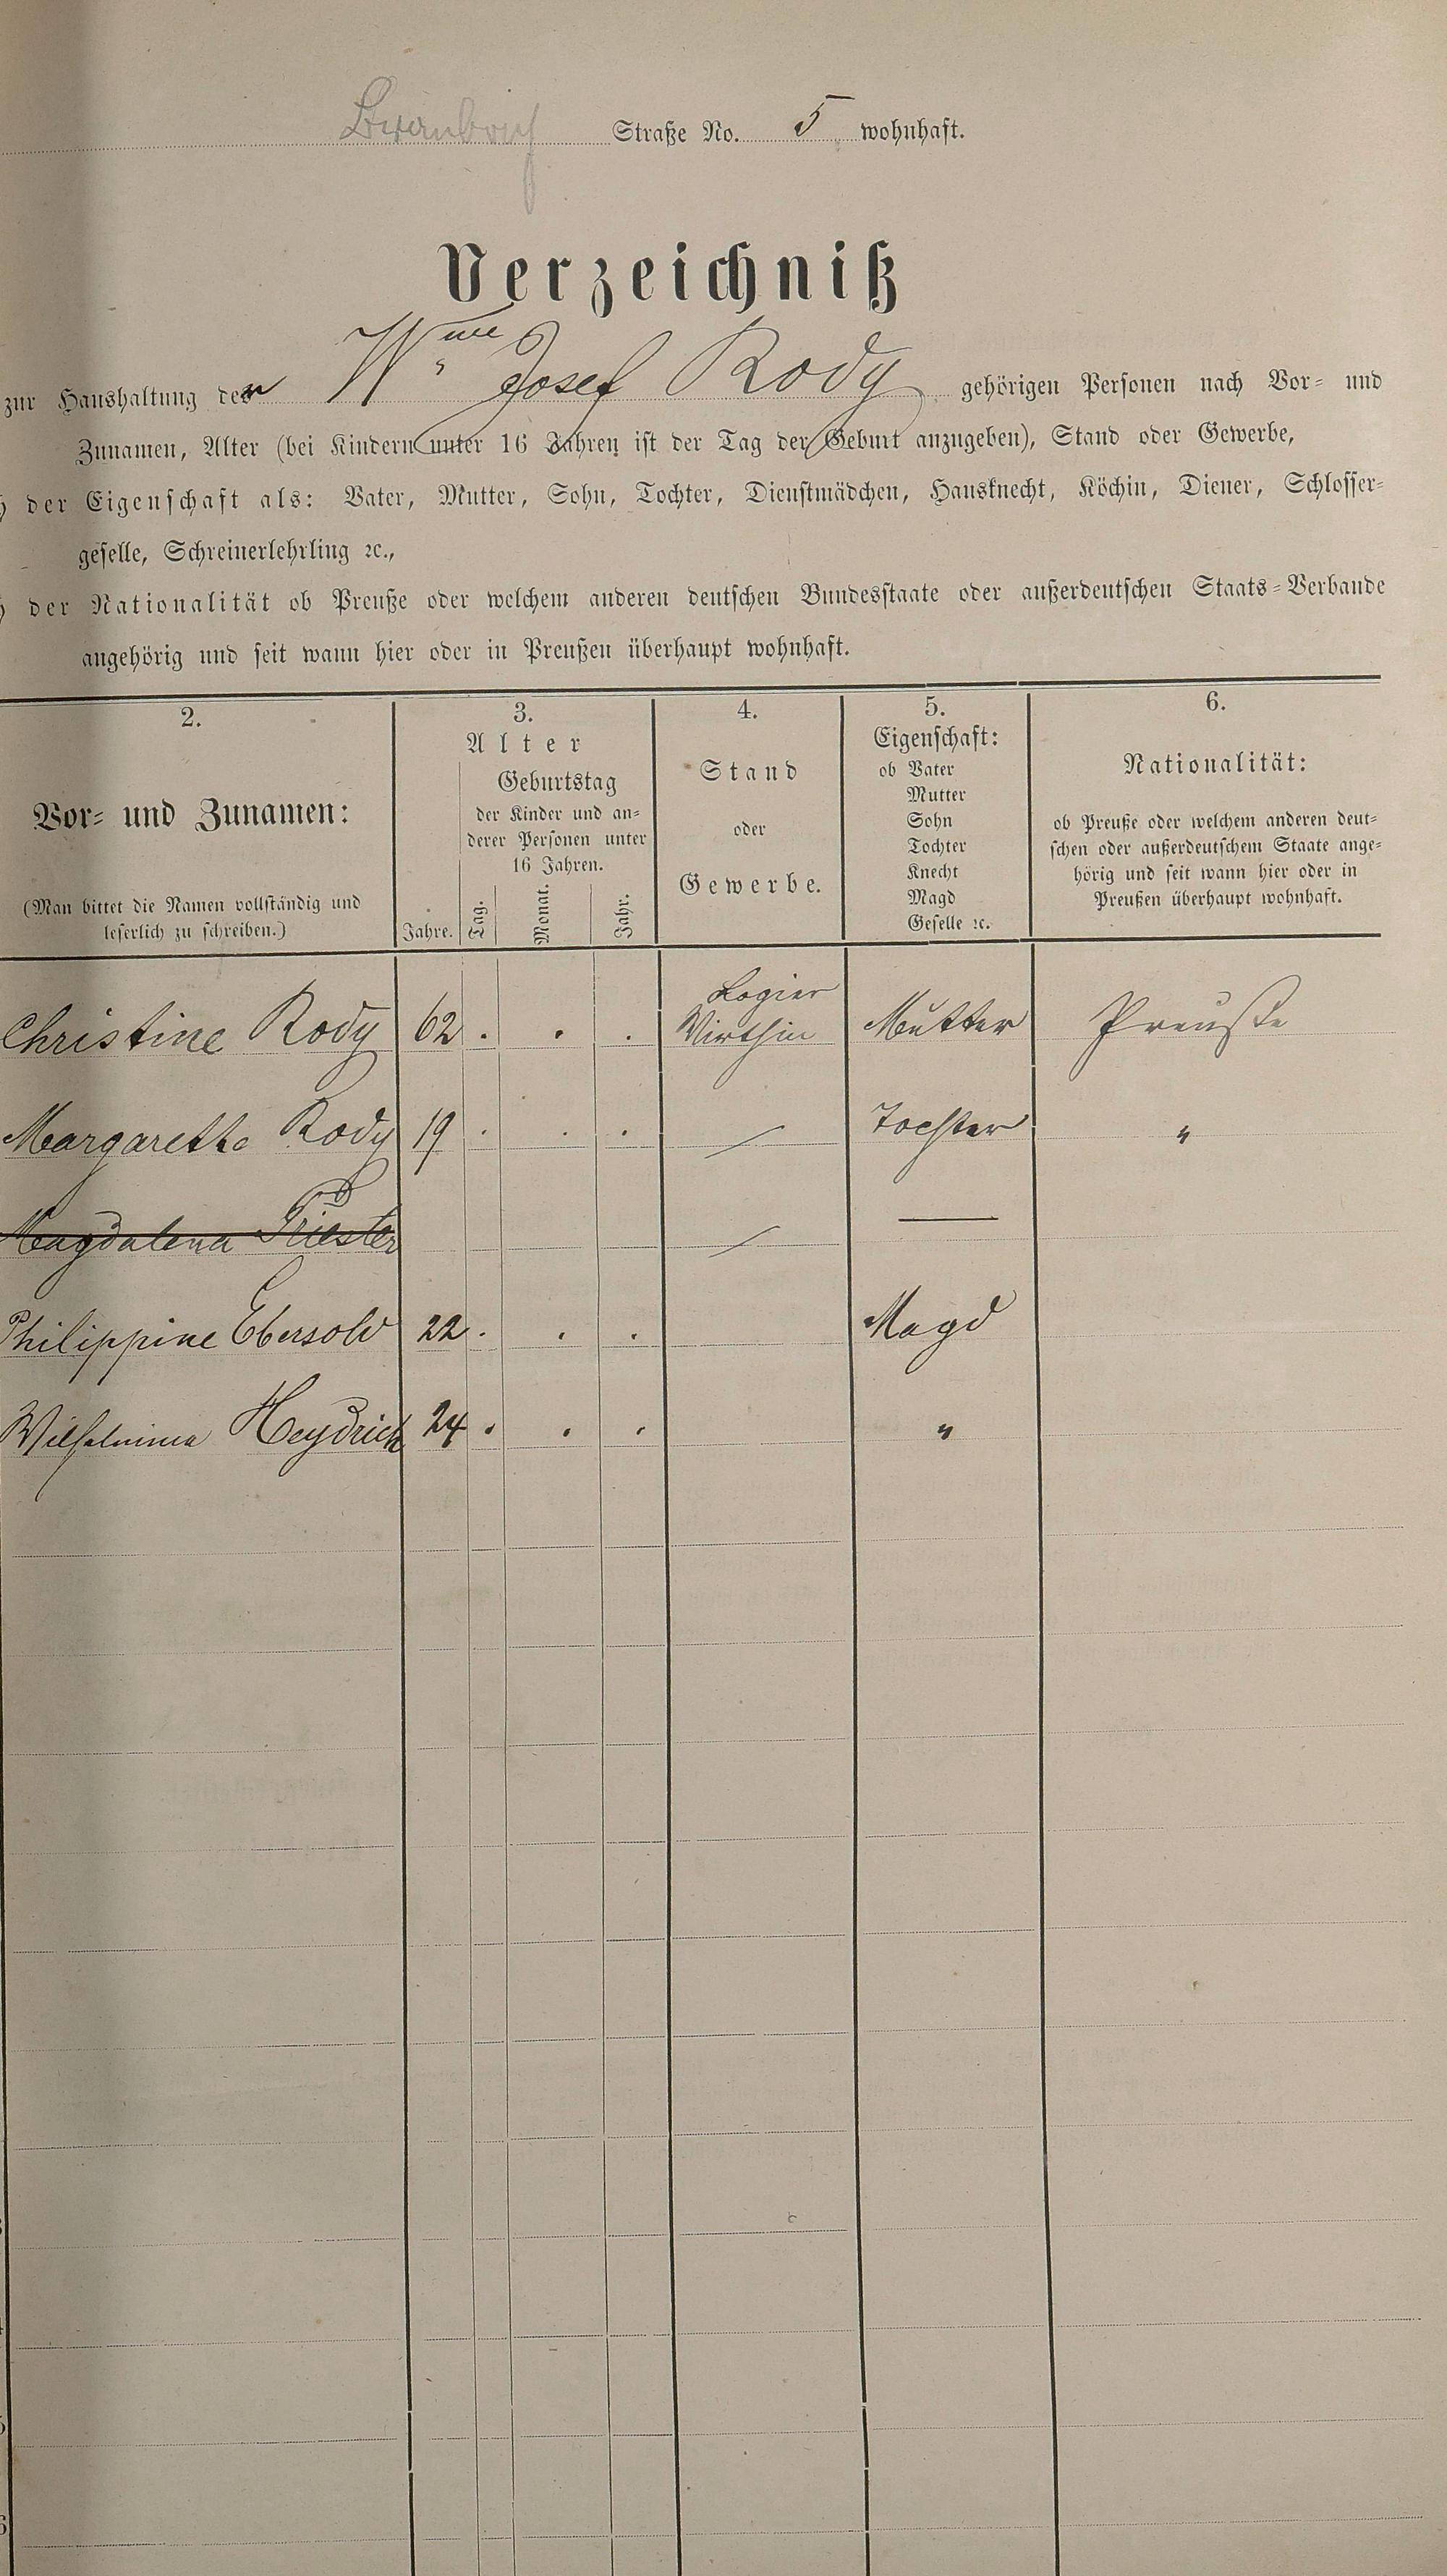 Straße No. 5 wohnhaft.
Verzeichniß
zur Haushaltung der Wwe Josef Rody gehörigen Personen nach Vor- und
Zunamen, Alter (bei Kindern unter 16 Jahren ist der Tag der Geburt anzugeben), Stand oder Gewerbe,
der Eigenschaft als: Vater, Mutter, Sohn, Tochter, Dienstmädchen, Hausknecht, Köchin, Diener, Schlosser-
geselle, Schreinerlehrling ꝛc.,
der Nationalität ob Preuße oder welchem anderen deutschen Bundesstaate oder außerdeutschen Staats-Verbande
angehörig und seit wann hier oder in Preußen überhaupt wohnhaft.
2.
Vor- und Zunamen:
(Man bittet die Namen vollständig und
leserlich zu schreiben.)
3.
Alter
Geburtstag
der Kinder und an-
derer Personen unter
16 Jahren.
Jahre. Tag. Monat. Jahr.
4.
Stand
oder
Gewerbe.
5.
Eigenschaft:
ob Vater
Mutter
Sohn
Tochter
Knecht
Magd
Geselle ꝛc.
6.
Nationalität:
ob Preuße oder welchem anderen deut-
schen oder außerdeutschem Staate ange-
hörig und seit wann hier oder in
Preußen überhaupt wohnhaft.
Christine Rody 62 . . . Logier Wirthin Mutter Preuße
Margaretha Rody 19 . . . Tochter "
Magdalena Triester
Philippine Ebersold 22 . . . Magd
Wilhelmina Heydrich 24 . . . "